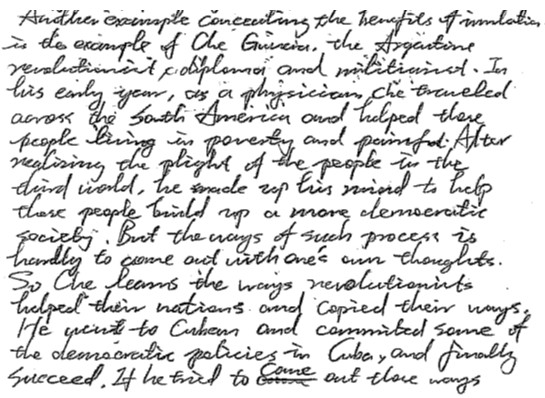 Another example concenting the benefits of imitation
is the example of Che Guivira, the Argentine
revolutionist, diplomat and militiarist. In
his early year, as a physician, che traveled
across the South America and helped those
people living in poverty and painful. After
realising the plight of the people in the
third world, he made up his mind to help
those people build up a more democratic
society. But the ways of such process is
hardly to come out with one's own thoughts.
So Che learns the ways revolutionists
helped their nations and copied their ways.
He went to Cuban and commited some of
the democratic policies in Cuba, and finally
succeed. If he tried to come out those ways